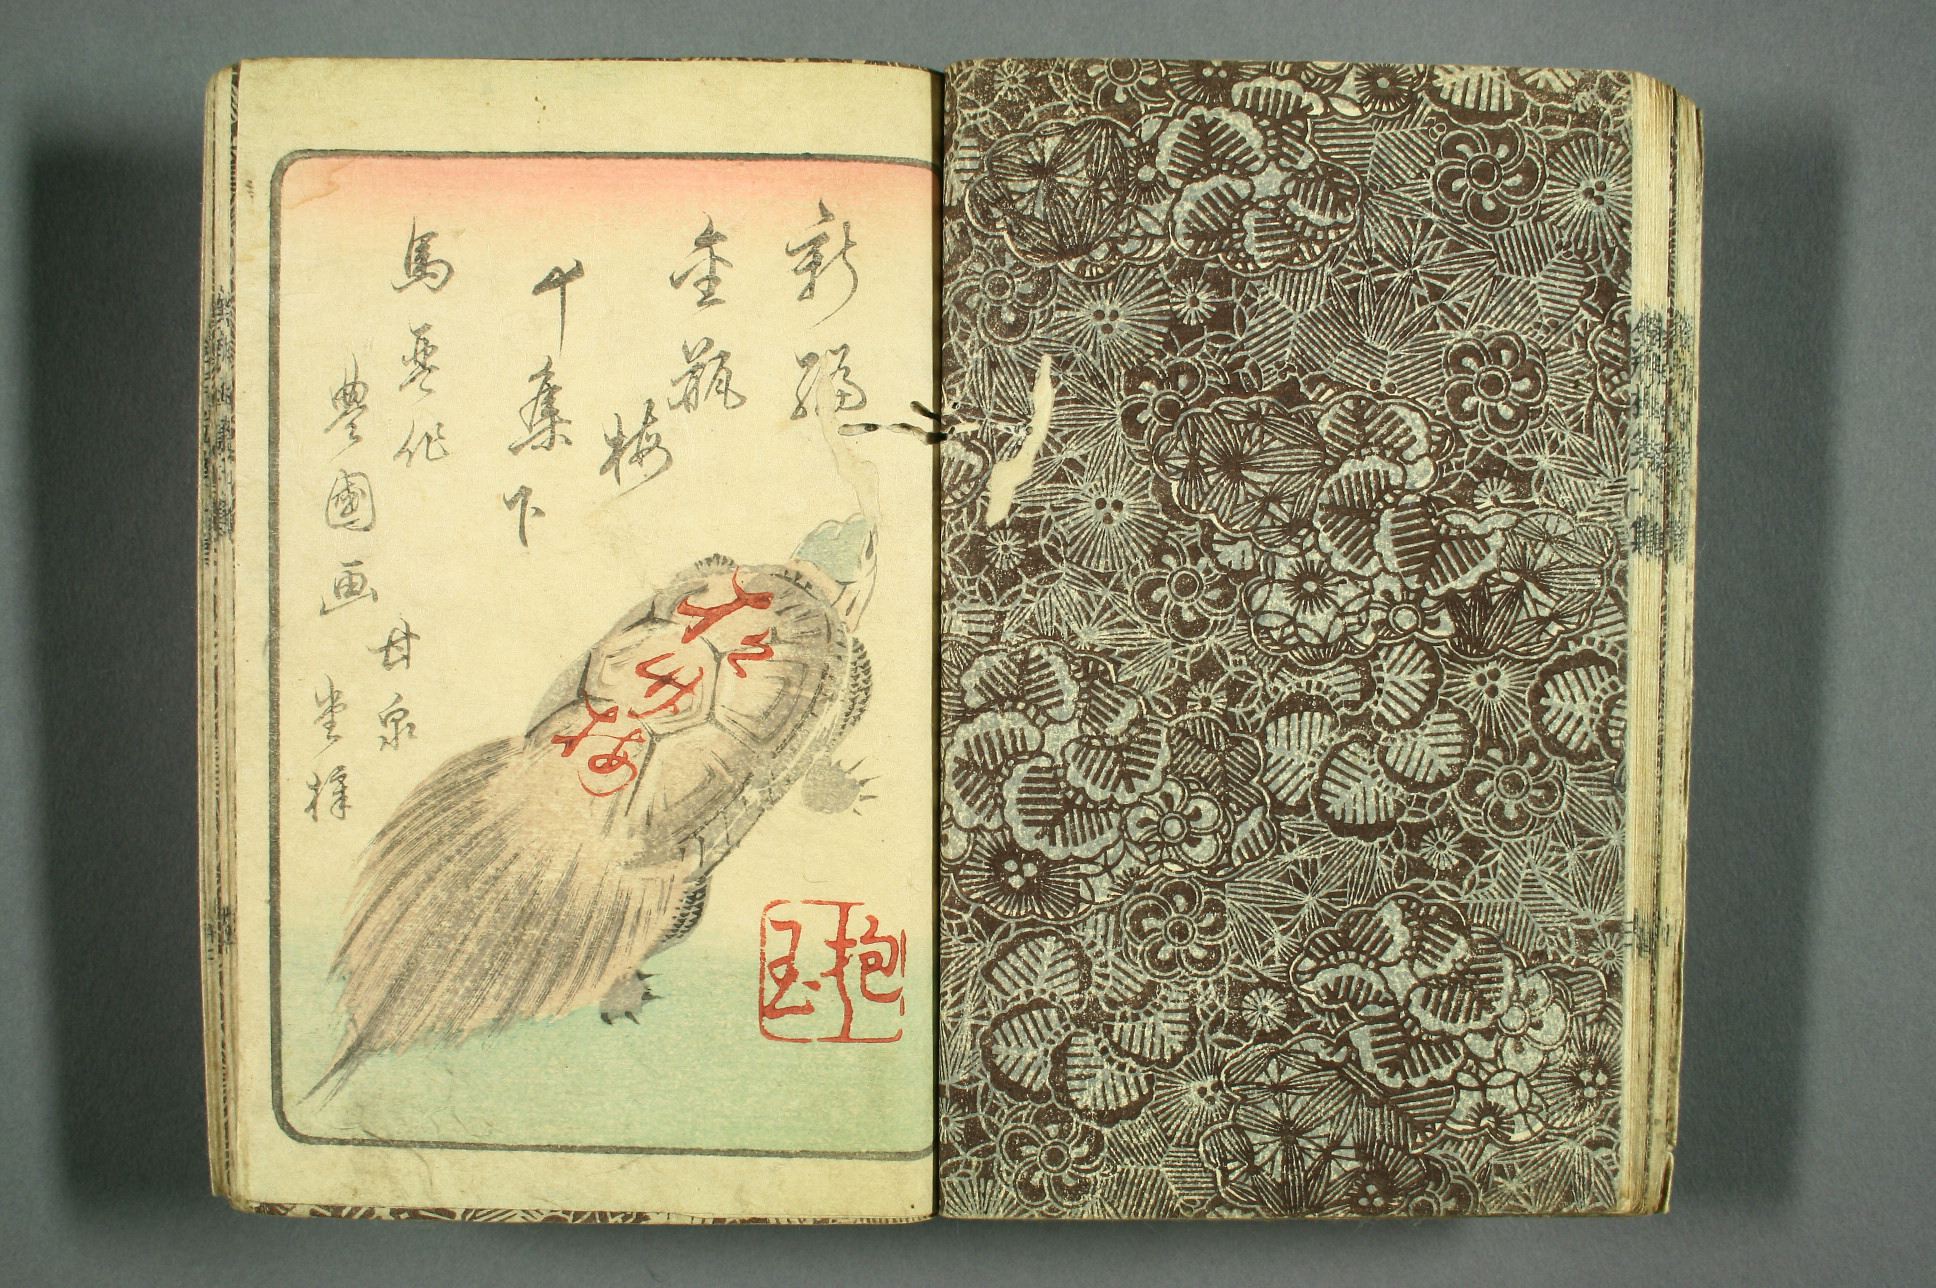 新編
金瓶
梅
十集下
馬琴作
豊國画
甘泉
堂梓
抱玉